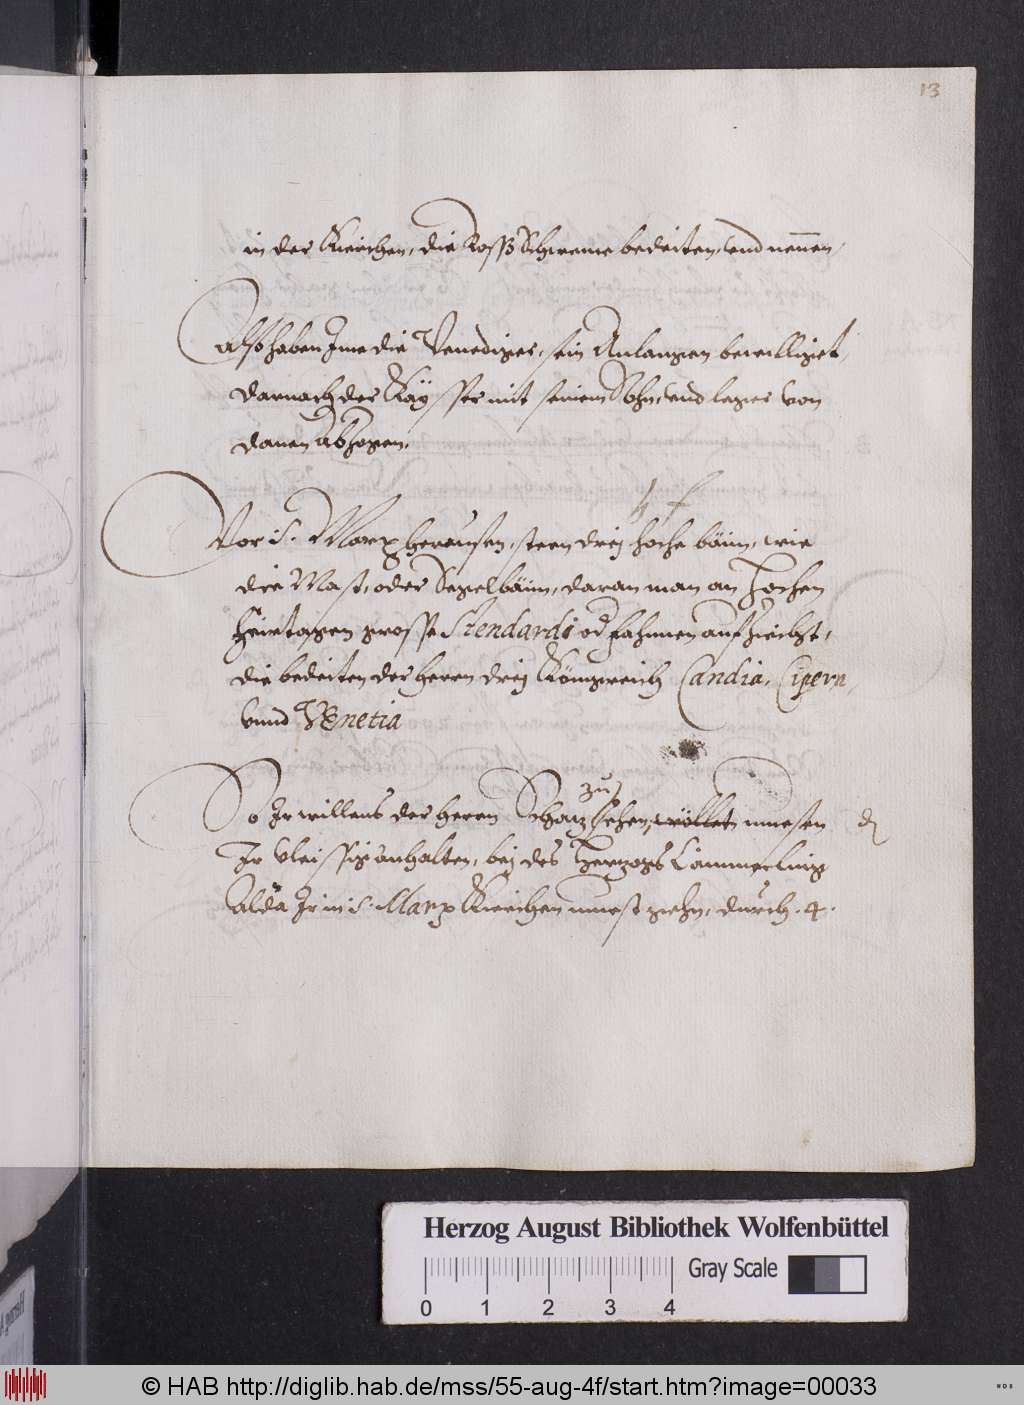 13
in der Kirchen, die Roß Schweme bedeiten, vnd nennen,
Also haben Ime die Venediger, sein Anlangen bewilliget,
darnach der Kaÿsser mit seinem Sohn, vnd leger von
danen abzogen.
Vor S. Marx heraussen, steen dreÿ hoche bäum, wie
die Mast, oder Segelbäum, daran man an hochen
Feirtagen grosse Stendardi od Fahnnen aufziecht,
die bedeiten der herrn dreÿ Königreich Candia, Cipern,
vnnd Venetia
zu
So Ir willens der herrn Schaz sehen, wöllet muesen
Ir vleissig anhalten, beÿ des Herzogs Cämmerling
Alda Ir in S. Marx Kirchen muest gehn, durch .4.
Herzog August Bibliothek Wolfenbüttel
Gray Scale
0 1 2 3 4
© HAB http://diglib.hab.de/mss/55-aug-4f/start.htm?image=00033